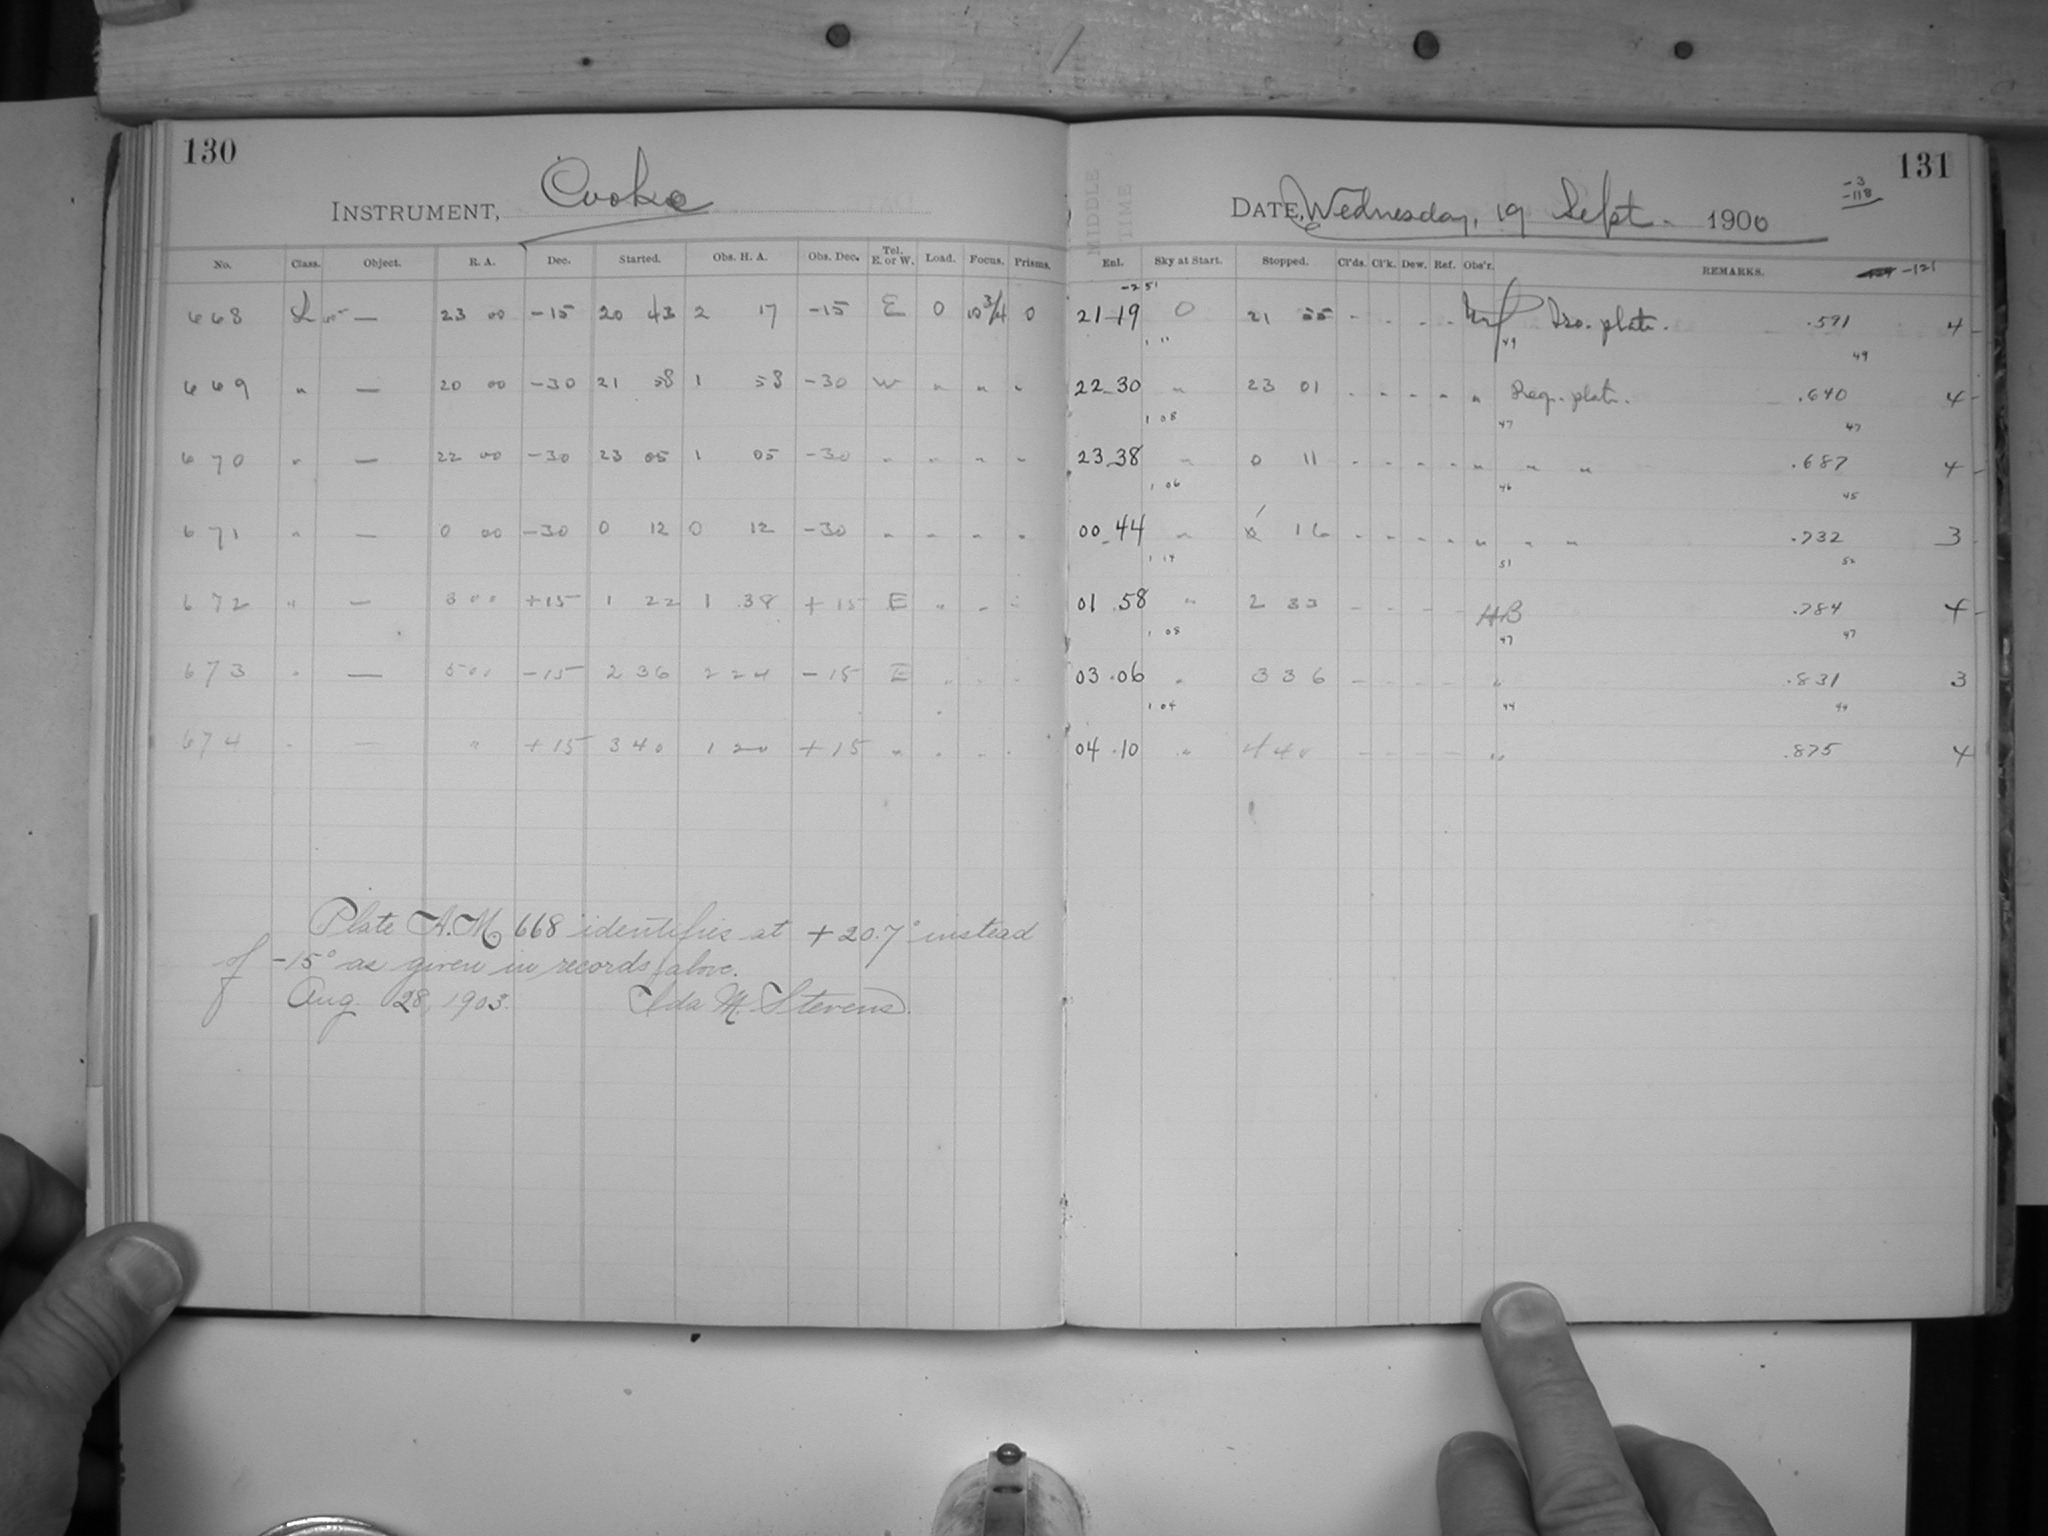 130
INSTRUMENT, Cooke
No. Class. Object. R. A. Dec. Started. Obs. H. A. Obs. Dec. Tel. E. or W. Load. Focus. Prisms.
668 L — 23 00 -15 20 43 2 17 -15 E 0 10 3/4 0
669 " — 20 00 -30 21 58 1 58 -30 W " " "
670 " — 22 00 -30 23 05 1 05 -30 " " " "
671 " — 0 00 -30 0 12 0 12 -30 " " " "
672 " — 3 00 +15 1 22 1 38 +15 E " " "
673 " — 5 00 -15 2 36 2 24 -15 E " " "
674 " — " +15 3 40 1 20 +15 " " " "
Plate A.M. 668 identifies at +20.7° instead
of -15° as given in records above.
Aug. 28, 1903. Ida M. Stevens.
131
-3
-118
DATE, Wednesday, 19 Sept. 1900
MIDDLE TIME
Enl. Sky at Start. Stopped. Cl'ds. Cl'k. Dew. Ref. Obs'r. REMARKS. -121
-251
21-19 0 21 55 - - - - Iso. plate. .591 4
1 11 49 49
22-30 " 23 01 - - - - " Reg. plate. .640 4
1 08 47 47
23-38 " 0 11 - - - - " " " .687 4
1 06 46 45
00-44 " 1 16 - - - - " " " .732 3
1 14 51 52
01.58 " 2 33 - - - - HB .784 4
1 08 47 47
03.06 " 3 36 - - - - " .831 3
1 04 44 44
04.10 " 4 40 - - - - " .875 4